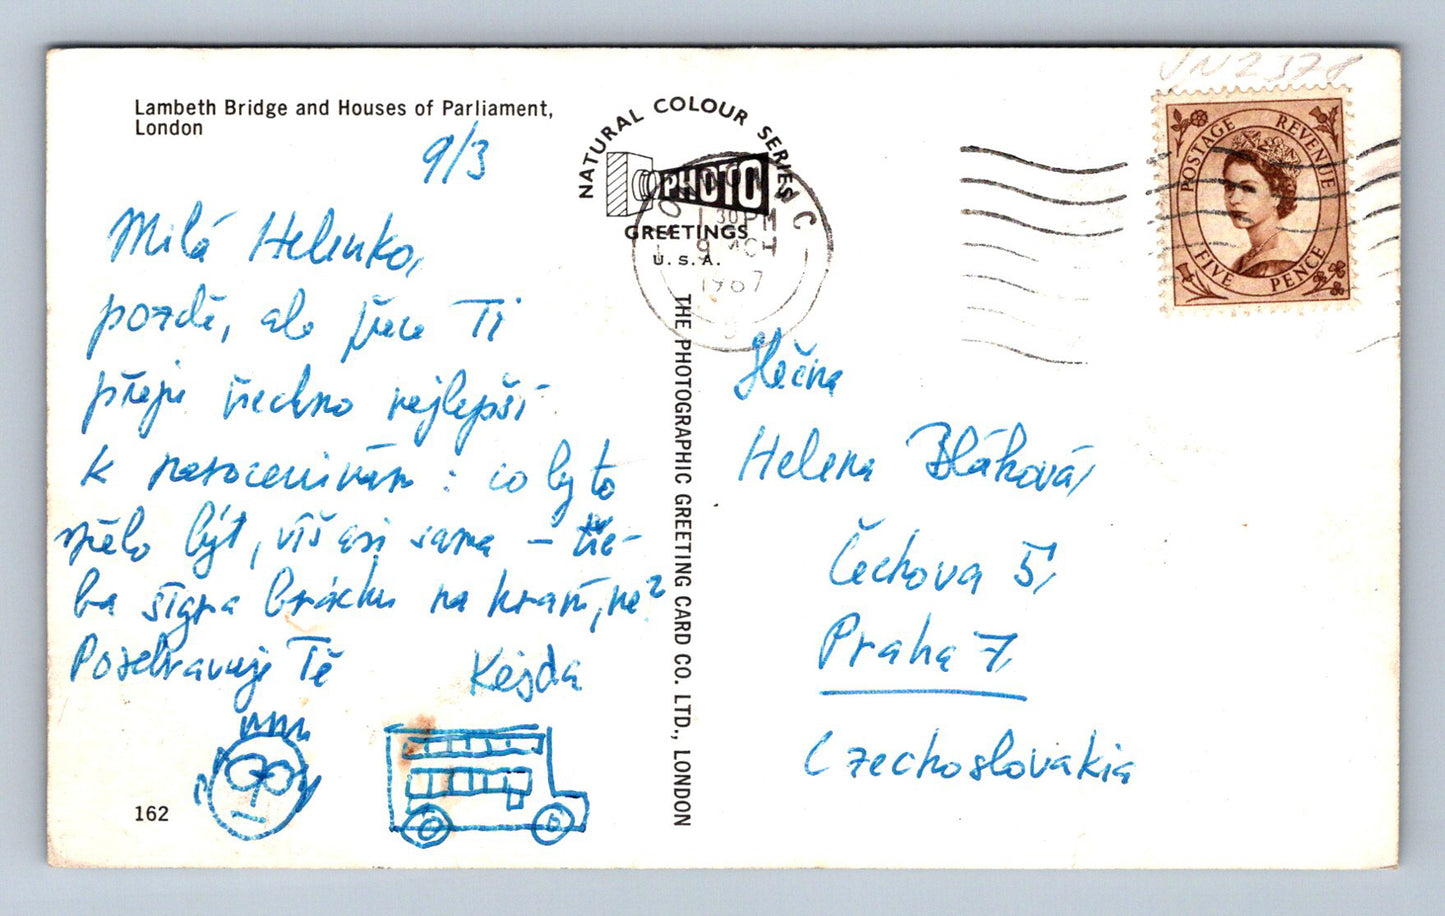 Lambeth Bridge and Houses of Parliament,
London
9/3
Milá Helenko,
pozdě, ale přece Ti
přeji všechno nejlepší
k narozeninám: co by to
mělo být, víš asi sama – tře-
ba šígra bráchu na hraní, ne?
Pozdravuje Tě
Kejda
162
NATURAL COLOUR SERIES
PHOTO
GREETINGS
U. S. A.
THE PHOTOGRAPHIC GREETING CARD CO. LTD., LONDON
1 30 PM
9 MCH
1967
POSTAGE REVENUE
FIVE PENCE
Slečna
Helena Bláhová,
Čechova 5,
Praha 7,
Czechoslovakia